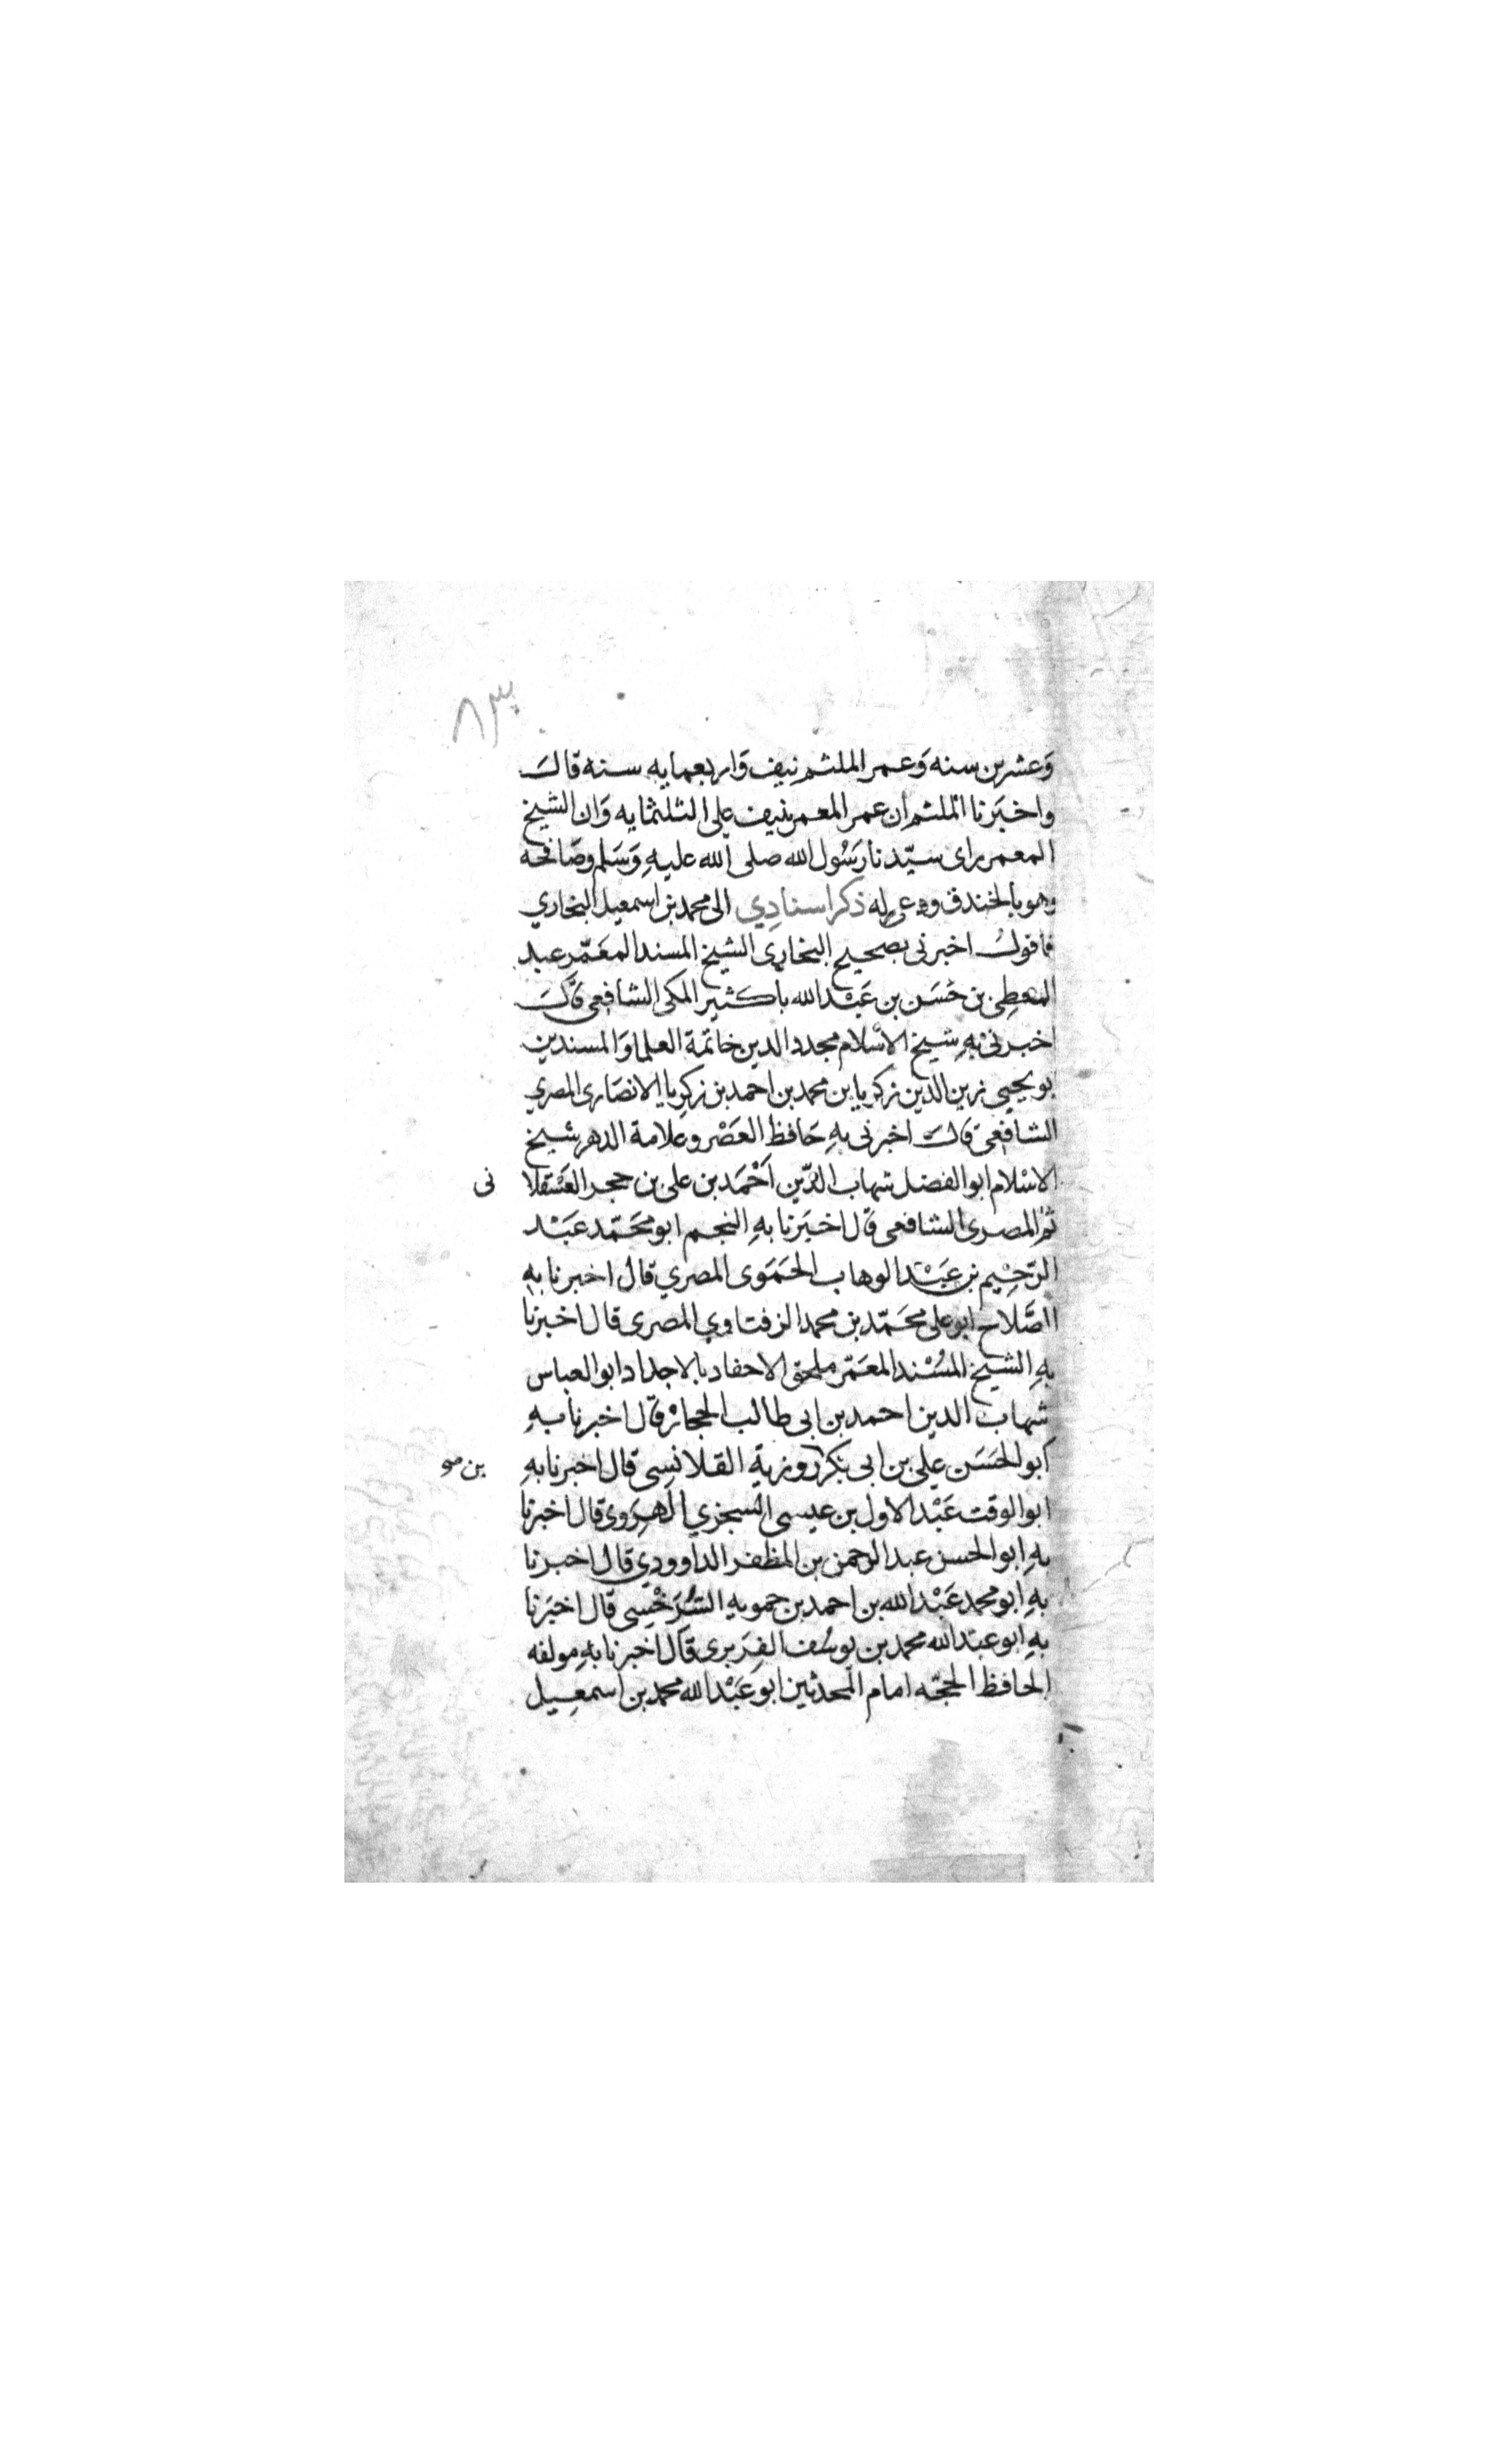 ٨٣
وَعشرين سنه وَعمر الملثم نيف وَاربعمايه سنه قالَ
واخبَرنا الملثم ان عمر المعمر نيف على الثلثمايه وَان الشيخ
المعمر راى سيّدنا رَسُول الله صلى الله عليهِ وَسَلم وصَافحه
وهو بالخندق ودعى له ذكر اسنادي الى محمد بن اسمعيل البخاري
فاقولُ اخبرنى بصحيح البخارى الشيخ المسند المعَمّر عبد
المعطِى بن حَسَن بن عَبْد الله باكثير المكى الشافعى قالَ
اخبرنى بهِ شيخ الاسْلام مجدد الدين خاتمة العلما وَالمسندين
بو يحيى زين الدين زكريا بن محمد بن احمد بن زكريا الانصَارى المصري
الشافعى قالَ اخبرنى بهِ حَافظ العَصْر وعلامة الدهر شيخ
الاسْلام ابو الفضل شهاب الدّين اَحْمَد بن على بن حجر العَسْقلا نى
ثم المصرى الشافعى قال اخبَرنا بهِ النجم ابو محَمّد عَبْد
الرّحِيْم بن عَبْد الوهاب الحَمَوى المصري قال اخبرنا بهِ
الصَّلاح ابو على محَمّد بن محمد الزفتاوي المصرى قال اخبرنا
بهِ الشيخ المسْند المعَمّر ملحق الاحفاد بالاجداد ابو العباس
شهاب الدين احمد بن ابى طالب الحجار قال اخبرنا بهِ
ابو الحَسَن على بن ابى بكر روزبة القلانسِى قال اخبرنا بهِ بن صو
ابو الوقت عَبْد الاول بن عيسى السجزي الهرَوى قال اخبرنا
بهِ ابو الحسن عبد الرحمن بن المظفر الداوودي قال اخبرنا
بهِ ابو محمد عَبْد الله بن احمد بن حمويه السَّرَخْسِى قال اخبَرنا
بهِ ابو عبد الله محمد بن يوسُف الفِرَبرى قال اخبرنا بهِ مولفه
الحافظ الحجّه امام المحدثين ابو عَبْد الله محمد بن اسمعِيل